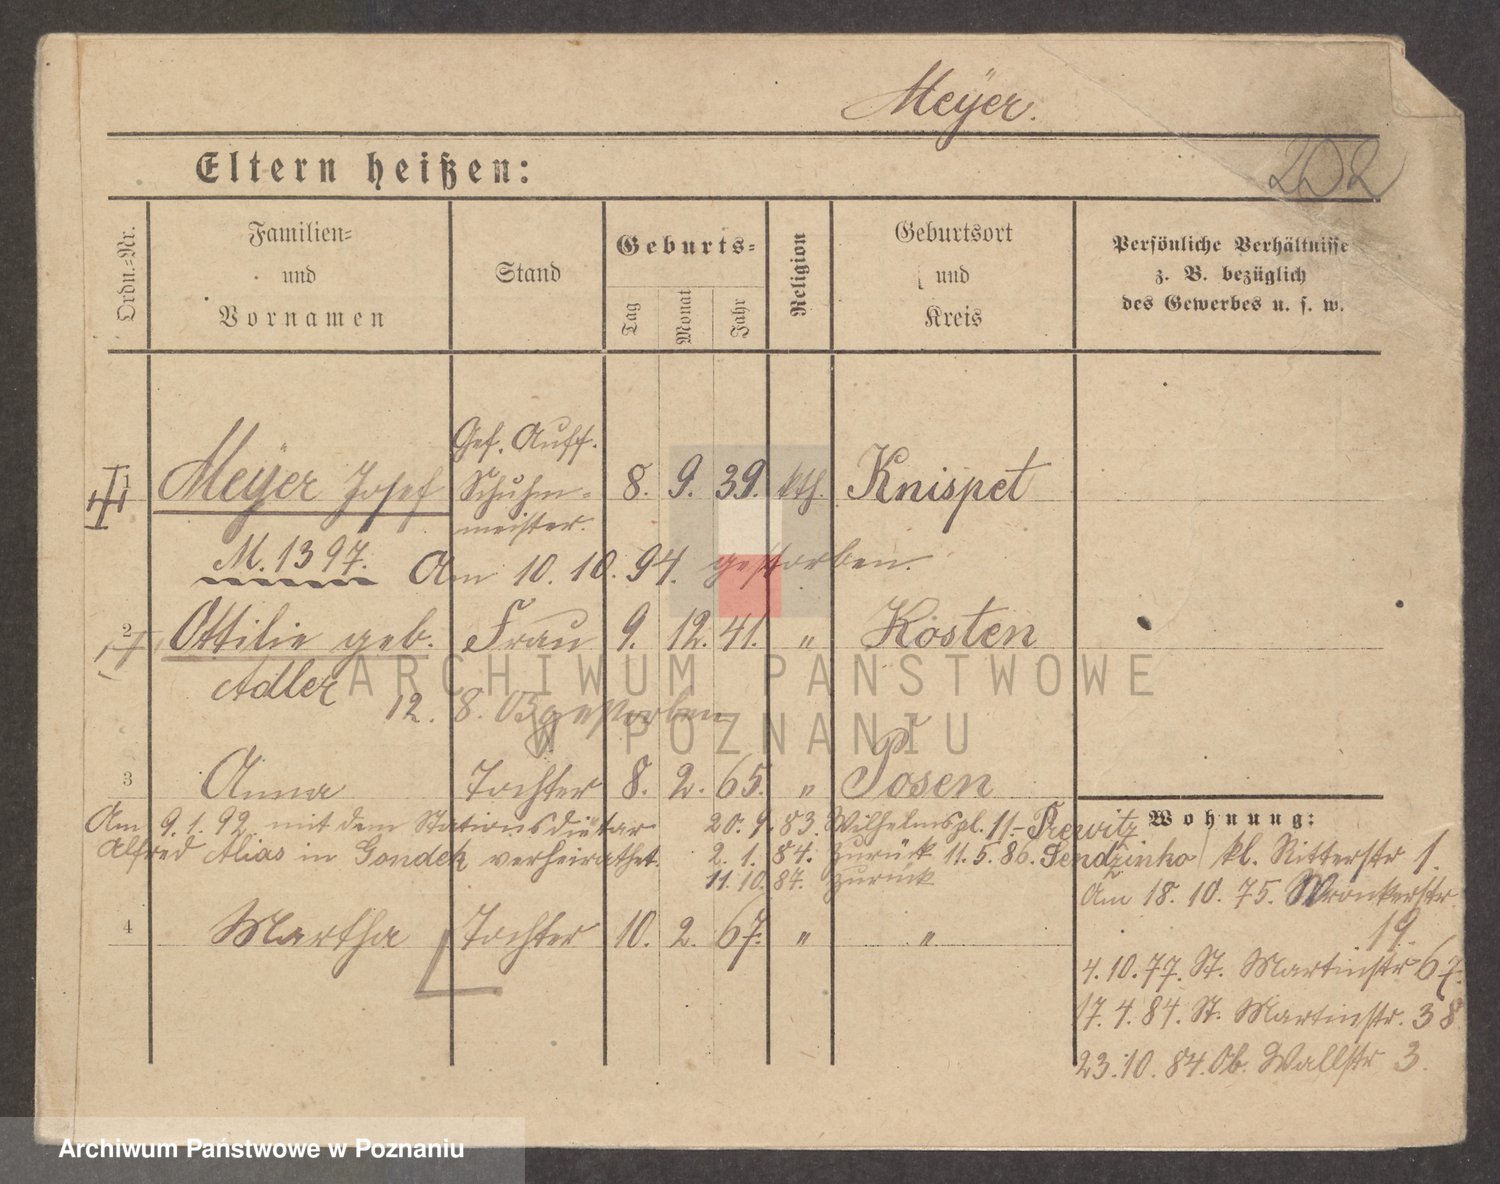 Meÿer.
202
Eltern heißen:
Ordn.-Nr.
Familien-
und
Vornamen
Stand
Geburts-
Tag
Monat
Jahr
Religion
Geburtsort
und
Kreis
Persönliche Verhältnisse
z. B. bezüglich
des Gewerbes u. s. w.
Gef. Auff.
1 Meÿer Josef Schuhm- 8. 9. 39. kth. Knispet
meister.
M. 1397. Am 10. 10. 94. gestorben.
2 Ottilie geb. Frau 9. 12. 41. " Kosten
Adler
12. 8. 03 gestorben
3 Anna Tochter 8. 2. 65. " Posen
Am 9. 1. 92 mit dem Stationsdiätar 20. 9. 83. Wilhelmspl. 11.
Alfred Alias in Gondek verheirathet 2. 1. 84. zurück 11. 5. 86.
11. 10. 87. zurück
4 Martha Tochter 10. 2. 67. " "
Wohnung:
kl. Ritterstr 1.
Am 18. 10. 75. Wronkerstr
19.
4. 10. 77. St. Martinstr 67.
17. 4. 84. St. Martinstr. 38
23. 10. 84. Ob. Wallstr 3.
ARCHIWUM PAŃSTWOWE
W POZNANIU
Archiwum Państwowe w Poznaniu